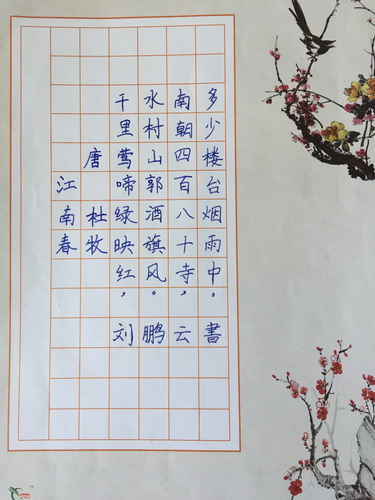 江南春
唐 杜牧
千里莺啼绿映红，
水村山郭酒旗风。
南朝四百八十寺，
多少楼台烟雨中。
刘鹏云書